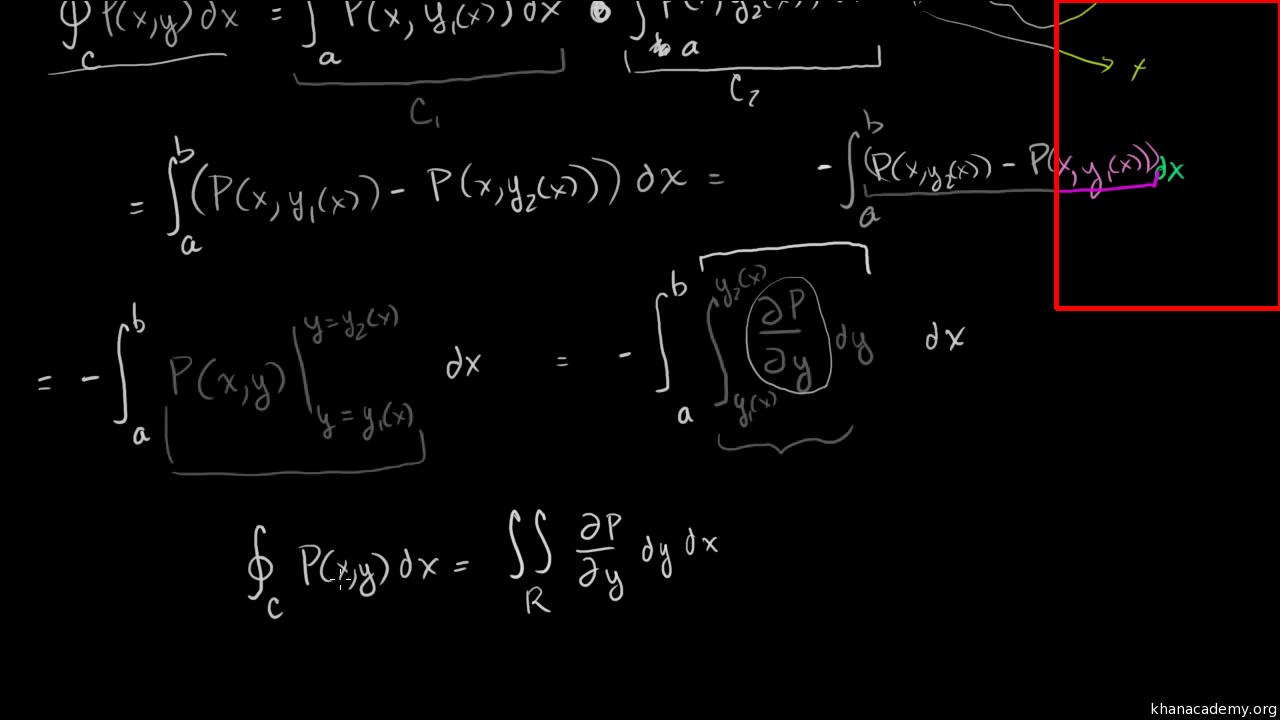 ∮_C P(x,y) dx = ∫_a P(x, y₁(x)) dx ∫_a P(x, y₂(x)) dx
C₁ C₂ x
= ∫_a^b (P(x, y₁(x)) - P(x,y₂(x))) dx = - ∫_a^b (P(x,y₂(x)) - P(x,y₁(x))) dx
= - ∫_a^b P(x,y) |_{y=y₁(x)}^{y=y₂(x)} dx = - ∫_a^b ∫_{y₁(x)}^{y₂(x)} ∂P/∂y dy dx
∮_C P(x,y) dx = ∬_R ∂P/∂y dy dx
khanacademy.org